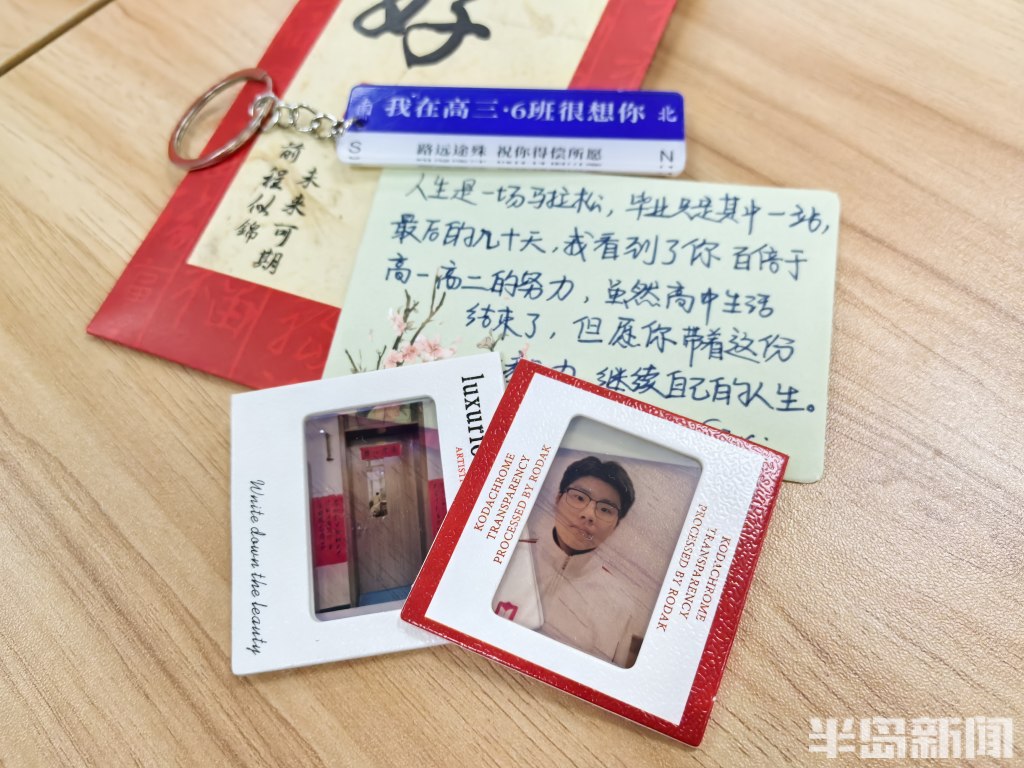 好
南 我在高三·6班很想你 北
S 路远途殊 祝你得偿所愿 N
前程似锦
未来可期
人生是一场马拉松，毕业只是其中一站，
最后的几十天，我看到了你 百倍于
高一高二的努力，虽然高中生活
结束了，但愿你带着这份
继续自己的人生。
福
luxurio
ARTIST
Wnite down the leauty
KODACHROME
TRANSPARENCY
PROCESSED BY RODAK
KODACHROME
TRANSPARENCY
PROCESSED BY RODAK
半岛新闻